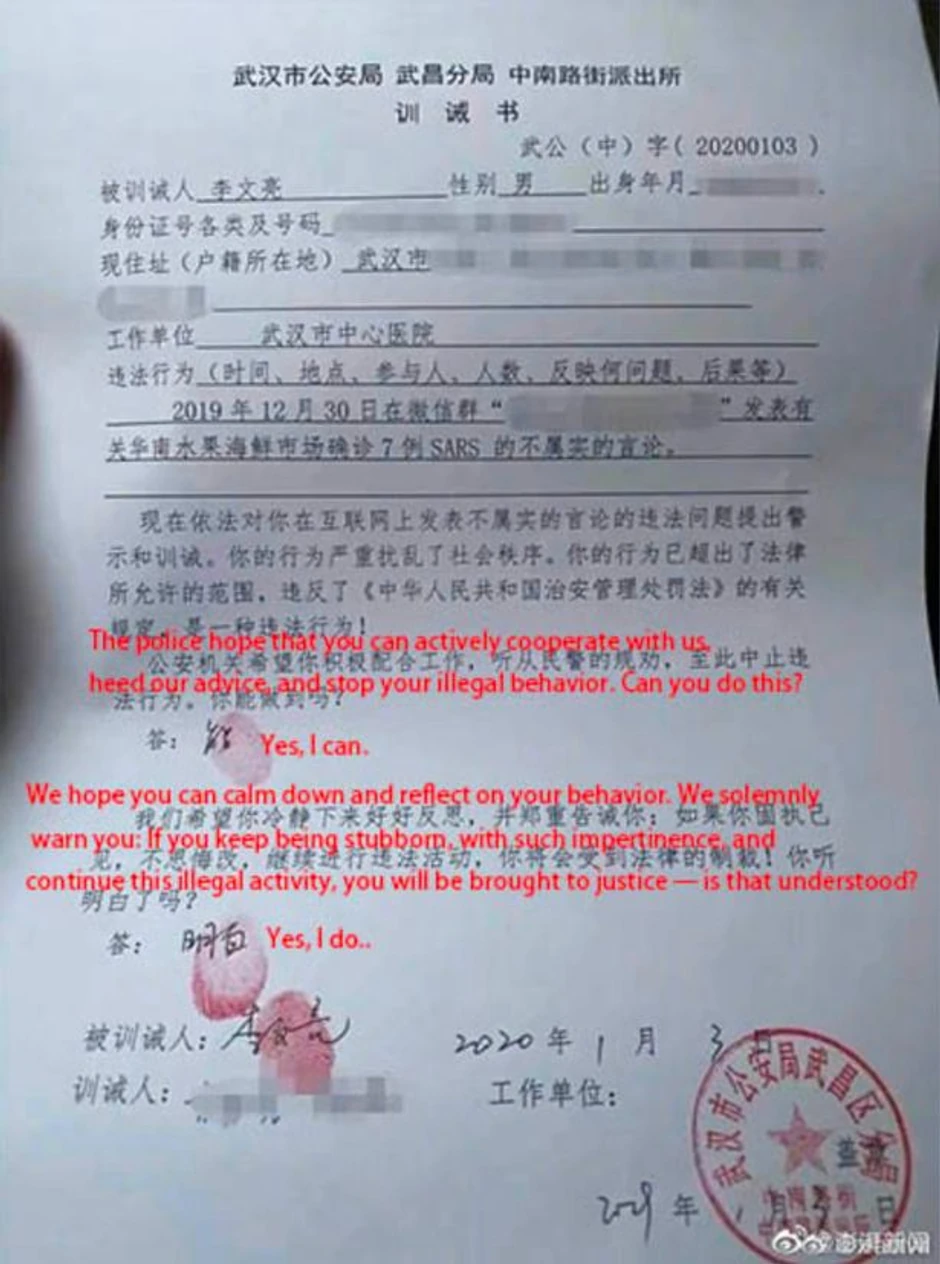 武汉市公安局 武昌分局 中南路街派出所
训 诫 书
武公（中）字（20200103）
被训诫人 李文亮 性别 男 出身年月
身份证号各类及号码
现住址（户籍所在地） 武汉市
工作单位 武汉市中心医院
违法行为（时间、地点、参与人、人数、反映何问题、后果等）
2019年12月30日在微信群“ ”发表有
关华南水果海鲜市场确诊7例SARS 的不属实的言论。
现在依法对你在互联网上发表不属实的言论的违法问题提出警
示和训诫。你的行为严重扰乱了社会秩序。你的行为已超出了法律
所允许的范围，违反了《中华人民共和国治安管理处罚法》的有关
规定，是一种违法行为！
The police hope that you can actively cooperate with us,
公安机关希望你积极配合工作，听从民警的规劝，至此中止违
heed our advice, and stop your illegal behavior. Can you do this?
法行为。你能做到吗？
答： 能 Yes, I can.
We hope you can calm down and reflect on your behavior. We solemnly
我们希望你冷静下来好好反思，并郑重告诫你：如果你固执己
warn you: If you keep being stubborn, with such impertinence, and
见，不思悔改，继续进行违法活动，你将会受到法律的制裁！你听
continue this illegal activity, you will be brought to justice — is that understood?
明白了吗？
答： 明白 Yes, I do..
被训诫人：李文亮 2020年 1 月 3 日
训诫人： 工作单位：
武汉市公安局武昌区分局
年 1 月 3 日
@澎湃新闻